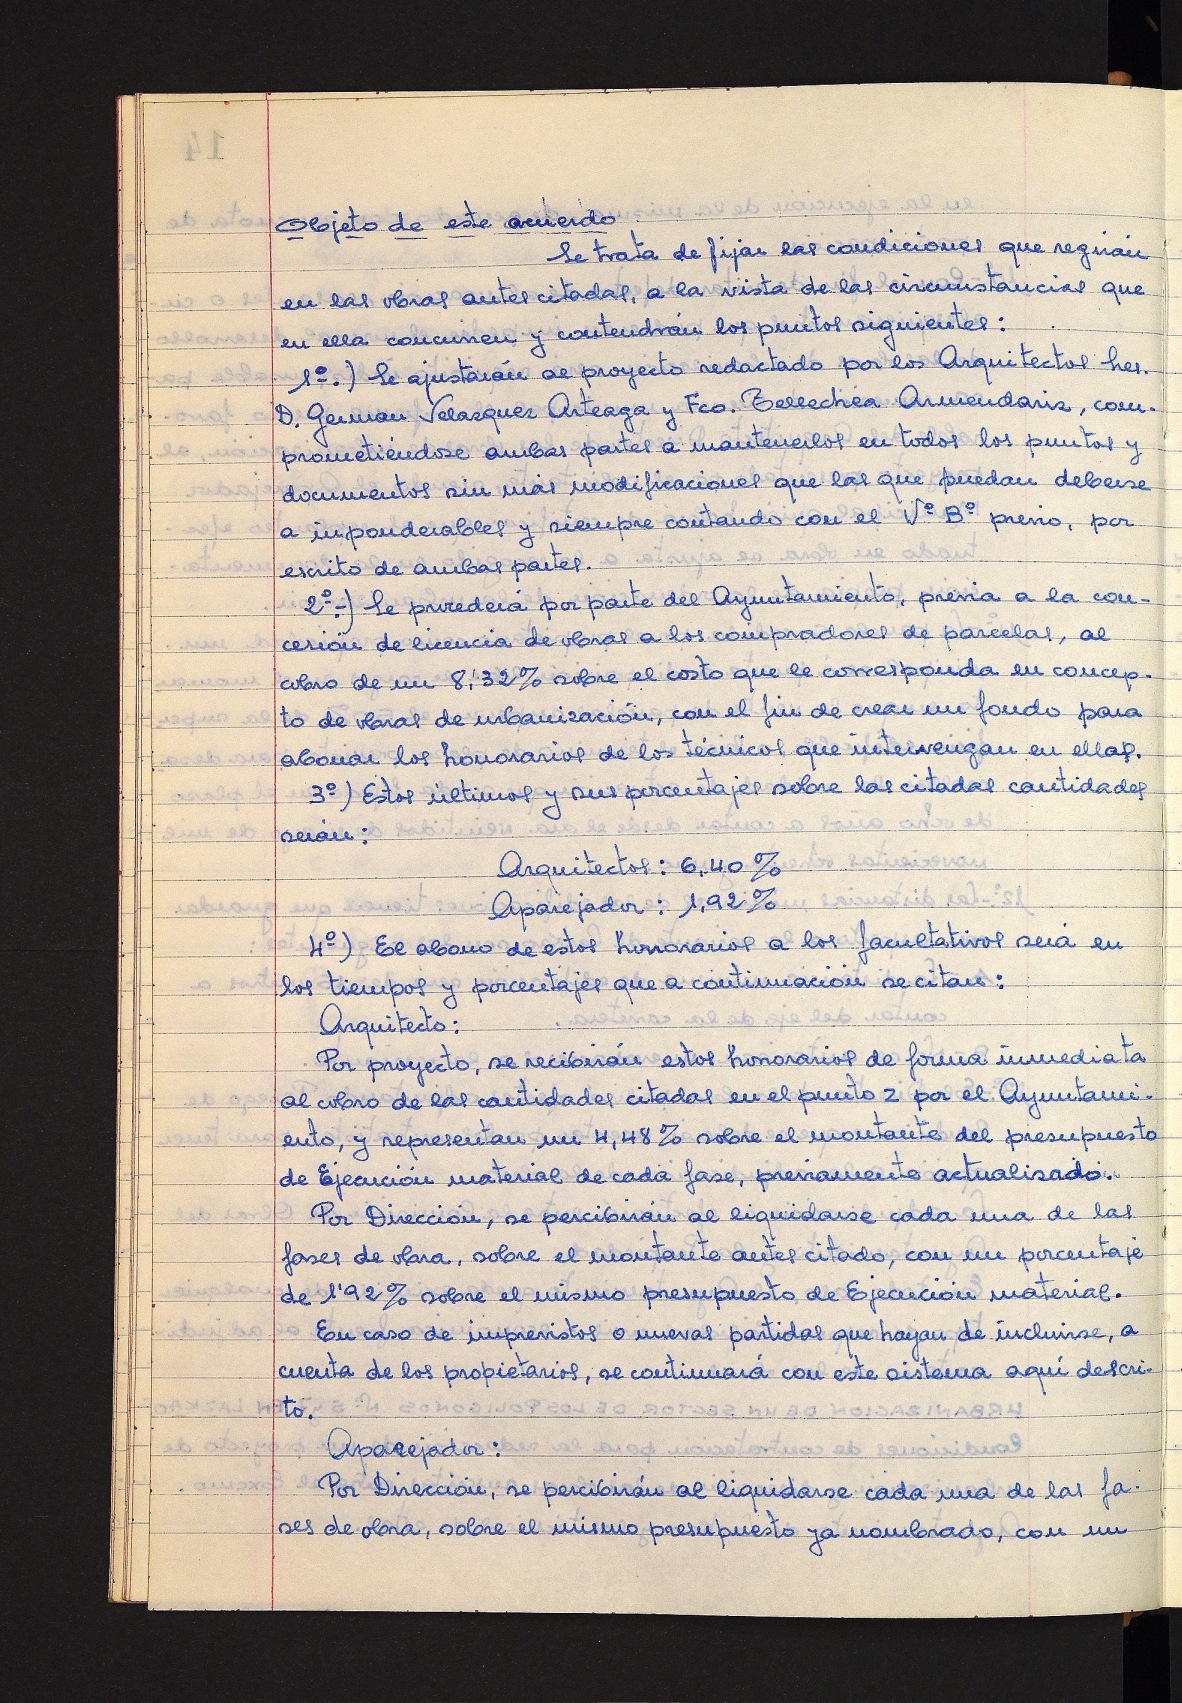 Objeto de este acuerdo
Se trata de fijar las condiciones que regirán
en las obras antes citadas, a la vista de las circunstancias que
en ella concurren y contendrán los puntos siguientes:
1º.) Se ajustarán al proyecto redactado por los Arquitectos Sres.
D. German Velasquez Arteaga y Fco. Tellechea Armendariz, com-
prometiéndose ambas partes a mantenerlos en todos los puntos y
documentos sin más modificaciones que las que puedan deberse
a imponderables y siempre contando con el Vº Bº previo, por
escrito de ambas partes.
2º.-) Se procederá por parte del Ayuntamiento, previa a la con-
cesión de licencia de obras a los compradores de parcelas, al
cobro de un 8,'32% sobre el costo que le corresponda en concep-
to de obras de urbanización, con el fin de crear un fondo para
abonar los honorarios de los técnicos que intervengan en ellas.
3º) Estos últimos y sus porcentajes sobre las citadas cantidades
serán:
Arquitectos: 6,40 %
Aparejador: 1,92 %
4º) El abono de estos honorarios a los facultativos será en
los tiempos y porcentajes que a continuación se citan:
Arquitecto:
Por proyecto, se recibirán estos honorarios de forma inmediata
al cobro de las cantidades citadas en el punto 2 por el Ayuntami-
ento, y representan un 4,48% sobre el montante del presupuesto
de Ejecución material de cada fase, previamente actualizado.
Por Dirección, se percibirán al liquidarse cada una de las
fases de obra, sobre el montante antes citado, con un porcentaje
de 1'92% sobre el mismo presupuesto de Ejecución material.
En caso de imprevistos o nuevas partidas que hayan de incluirse, a
cuenta de los propietarios, se continuará con este sistema aquí descri-
to.
Aparejador:
Por Dirección, se percibirán al liquidarse cada una de las fa-
ses de obra, sobre el mismo presupuesto ya nombrado, con un